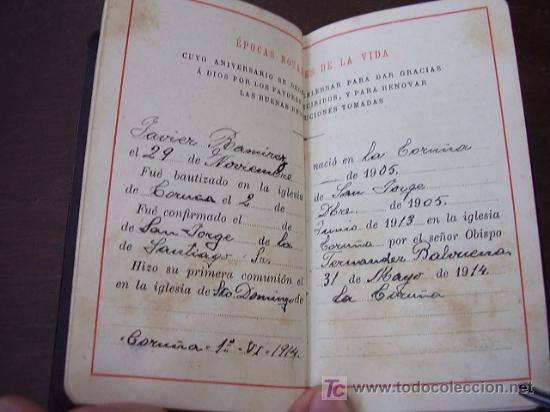 ÉPOCAS NOTA ES DE LA VIDA
CUYO ANIVERSARIO SE DEB CELEBRAR PARA DAR GRACIAS
Á DIOS POR LOS FAVORES CIBIDOS, Y PARA RENOVAR
LAS BUENAS RE UCIONES TOMADAS
Javier Ramirez nació en La Coruña
el 29 de Noviembre de 1905.
Fué bautizado en la iglesia de San Jorge
de Coruña el 2 de Dbre. de 1905.
Fué confirmado el de Junio de 1913 en la iglesia
de San Jorge de La Coruña por el señor Obispo
de Santiago Fernandez
Hizo su primera comunión el 31 de Mayo de 1914.
en la iglesia de Sto. Domingo de La Coruña
Coruña - 1º - VI - 1914.
todocoleccion.net